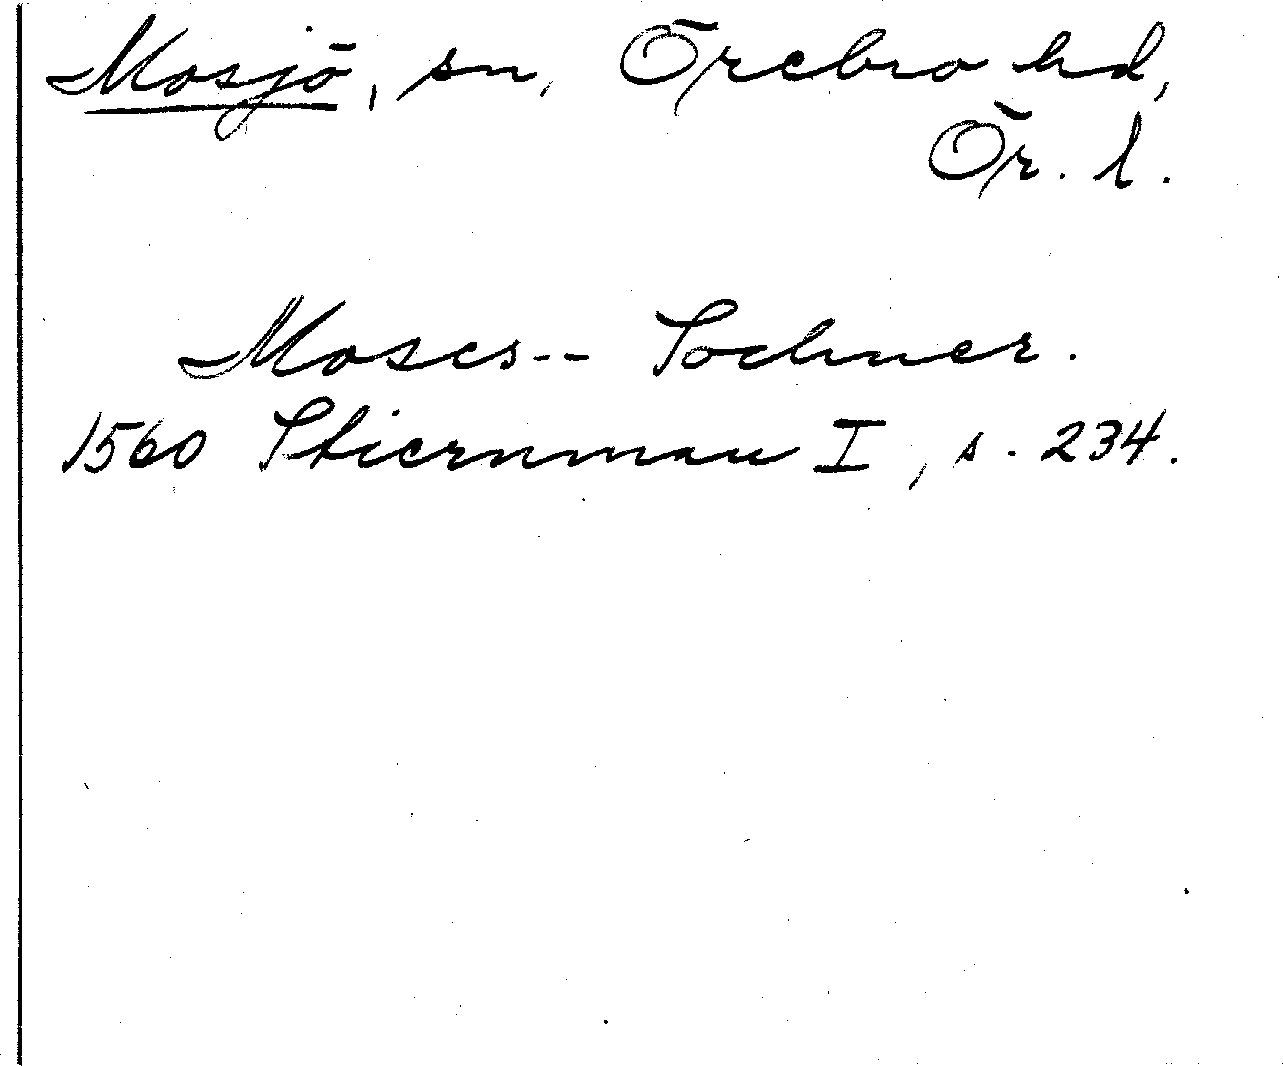 Mosjö, sn, Örebro hd,
Ör. l.
Moses-- Sochner.
1560 Stiernman I, s. 234.